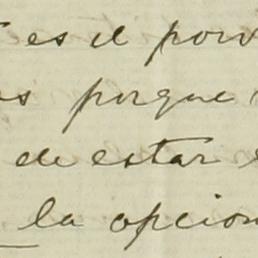 es el porv
os porque
de estar
la opcion